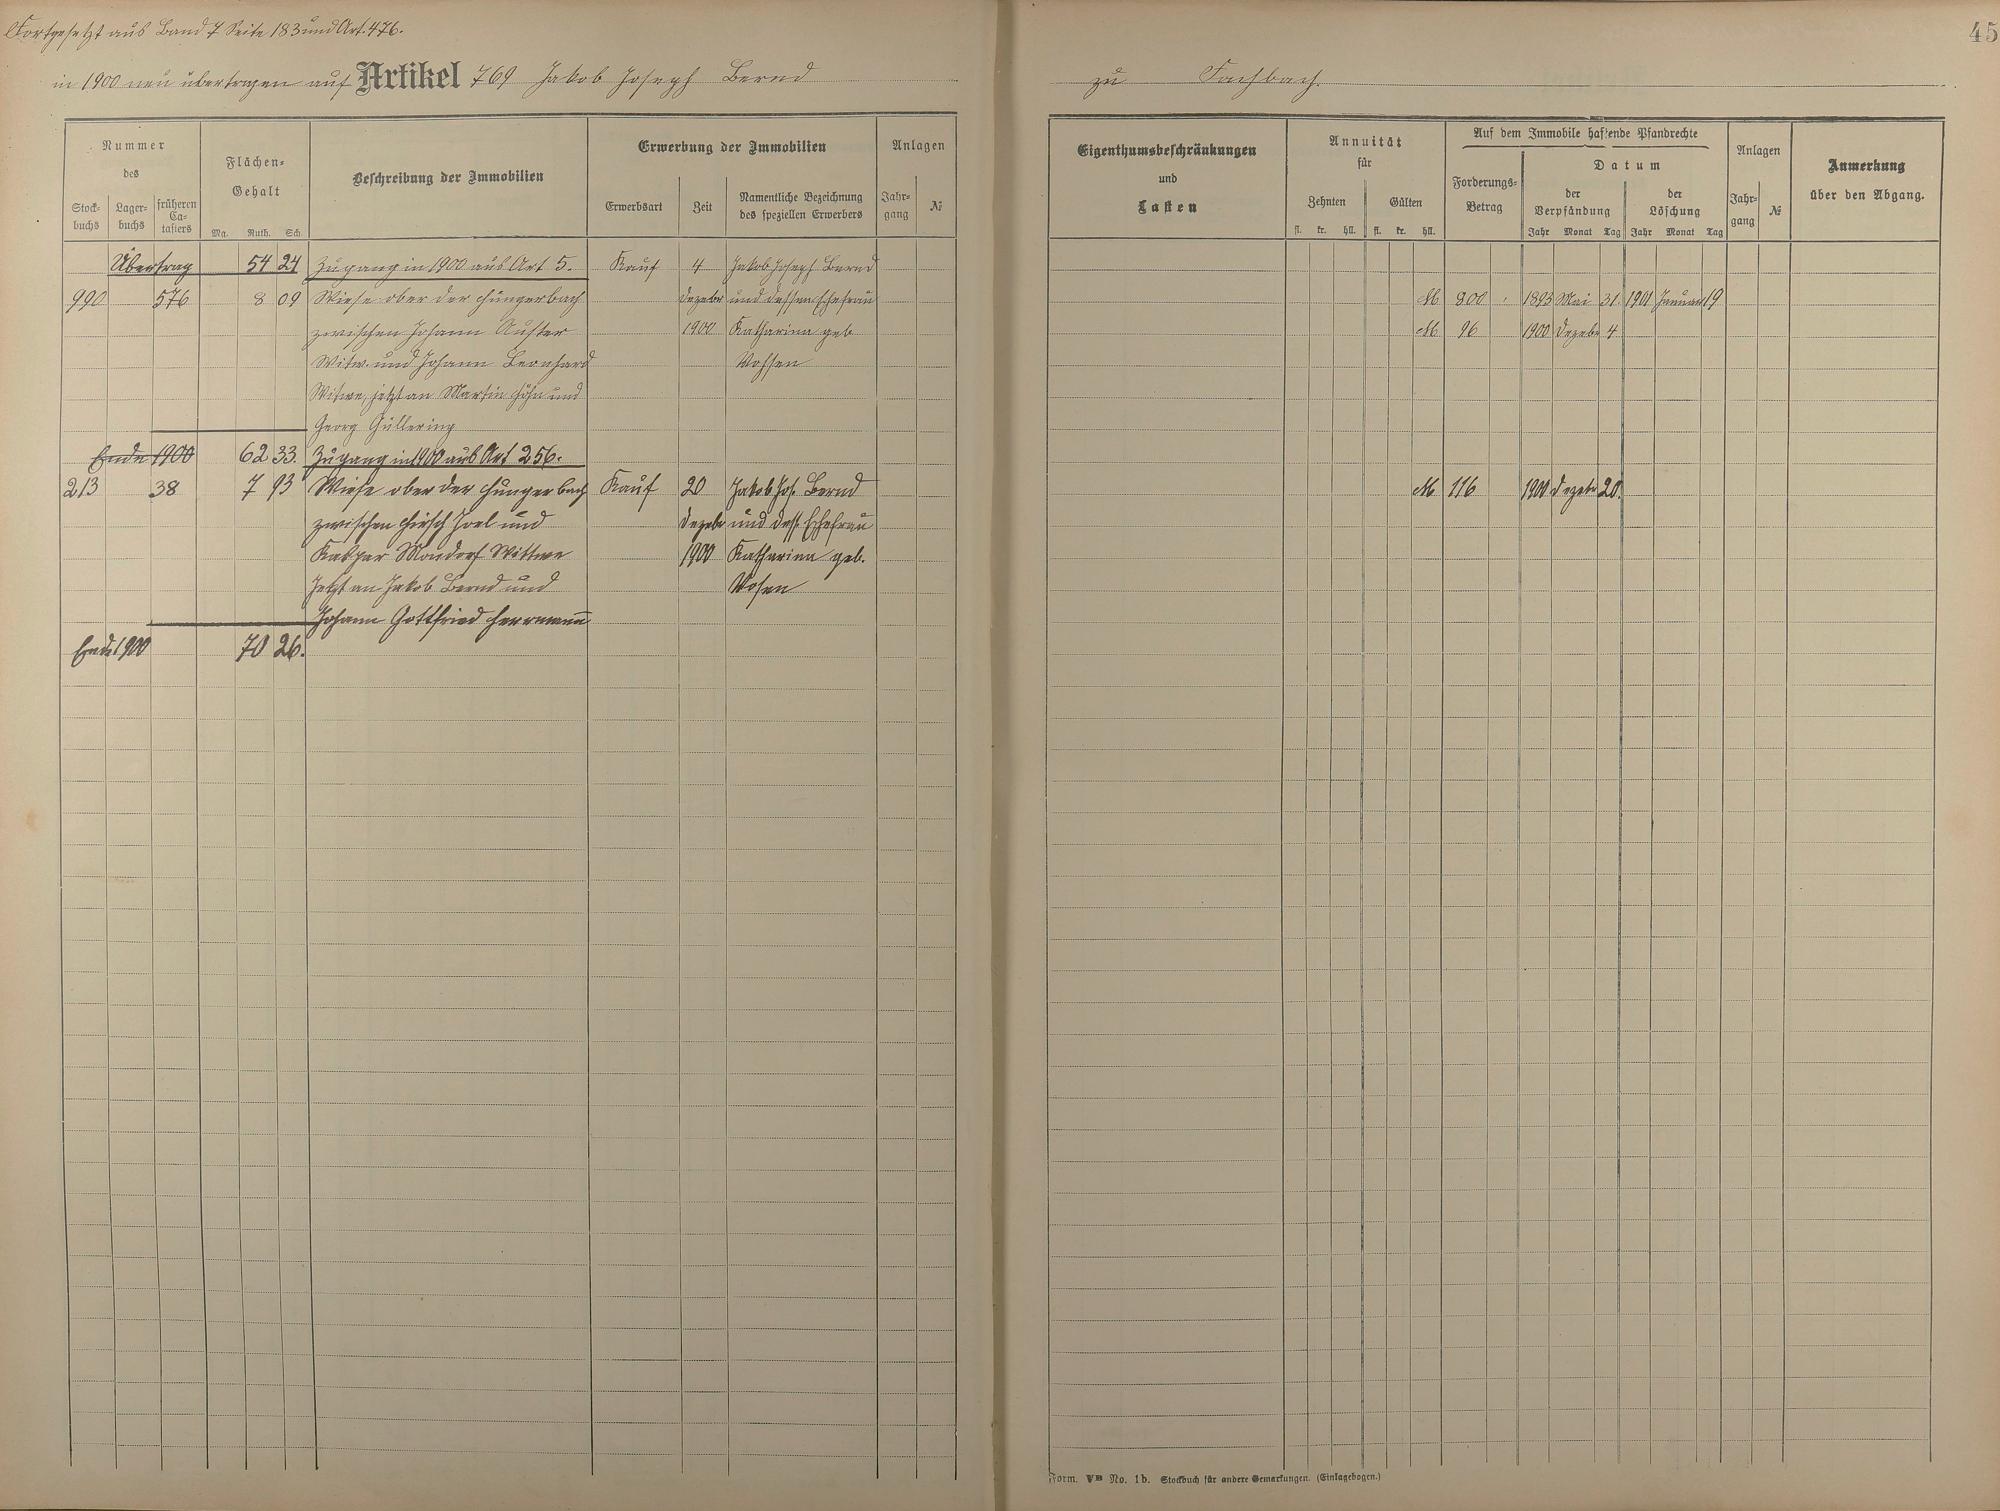 Fortgesetzt aus Band 7 Seite 183 und Art. 476.
in 1900 neu übertragen auf Artikel 769 Jakob Joseph Bernd
zu Fachbach.
45
Nummer
des
Stock-
buchs
Lager-
buchs
früheren
Ca-
tasters
Flächen-
Gehalt
Mg. Ruth. Sch.
Beschreibung der Immobilien
Erwerbung der Immobilien
Erwerbsart
Zeit
Namentliche Bezeichnung
des speziellen Erwerbers
Anlagen
Jahr-
gang
№
Eigenthumsbeschränkungen
und
Lasten
Annuität
für
Zehnten Gülten
fl. kr. hll. fl. kr. hll.
Auf dem Immobile haftende Pfandrechte
Forderungs-
Betrag
Datum
der
Verpfändung
der
Löschung
Jahr Monat Tag Jahr Monat Tag
Anlagen
Jahr-
gang
№
Anmerkung
über den Abgang.
Übertrag 54 24 Zugang in 1900 aus Art 5. Kauf 4 Jakob Joseph Bernd
990 576 8 09 Wiese ober der Hungerbach Dezebr und dessen Ehefrau M 800 1893 Mai 31. 1901 Januar 19
zwischen Johann Auster 1900 Katharina geb M 96 1900 Dezebr 4
Witw. und Johann Leonhard Vossen
Witwe, jetzt an Martin Höhn und
Georg Güllering
Ende 1900 62 33. Zugang in 1900 aus Art 256.
213 38 7 93 Wiese ober der Hungerbach Kauf 20 Jakob Jos. Bernd M 116 1900 Dezebr 20.
zwischen Hirsch Joel und Dezebr und dess. Ehefrau
Kaspar Mondorf Wittwe 1900 Katharina geb.
Jetzt an Jakob Bernd und Vosen
Johann Gottfried Herrmann
Ende 1900 70 26.
Form. VB No. 1b. Stockbuch für andere Gemarkungen. (Einlagebogen.)